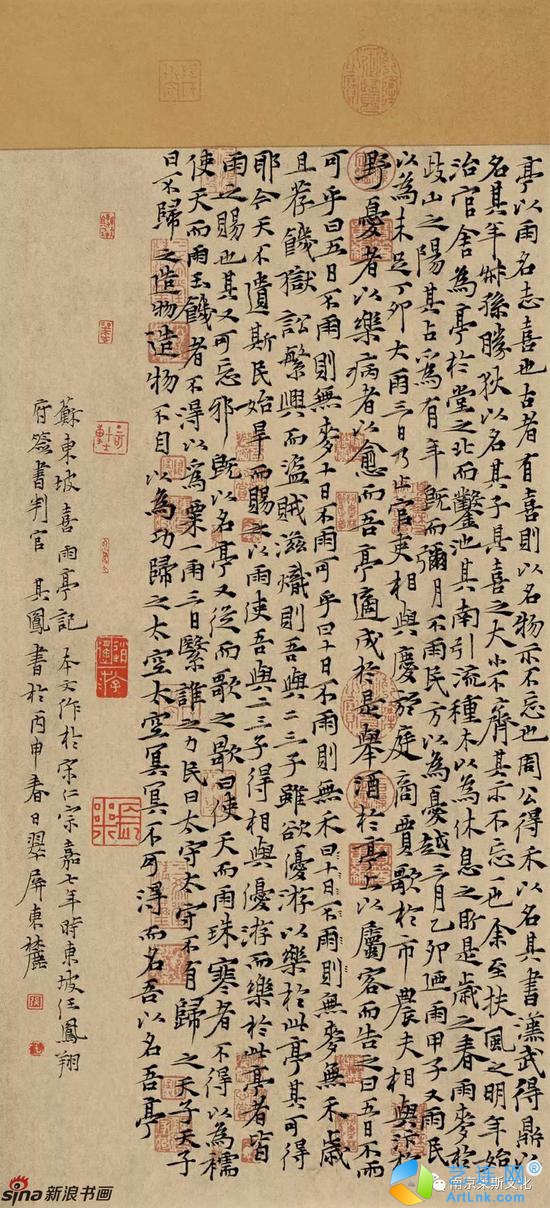 亭以雨名志喜也古者有喜則以名物示不忘也周公得禾以名其書漢武得鼎以
名其年叔孫勝狄以名其子其喜之大小不齊其示不忘一也余至扶風之明年始
治官舍為亭於堂之北而鑿池其南引流種木以為休息之所是歲之春雨麥於
歧山之陽其占為有年既而彌月不雨民方以為憂越三月乙卯迺雨甲子又雨民
以為未足丁卯大雨三日乃止官吏相與慶於庭商賈歌於市農夫相與忭於
野憂者以樂病者以愈而吾亭適成於是舉酒於亭上以屬客而告之曰五日不雨
可乎曰五日不雨則無麥十日不雨可乎曰十日不雨則無禾曰十日不雨則無麥無禾歲
且荐饑獄訟繁興而盜賊滋熾則吾與二三子雖欲優游以樂於此亭其可得
耶今天不遺斯民始旱而賜之以雨使吾與二三子得相與優游而樂於此亭者皆
雨之賜也其又可忘邪既以名亭又從而歌之歌曰使天而雨珠寒者不得以為襦
使天而雨玉饑者不得以為粟一雨三日繄誰之力民曰太守太守不有歸之天子天子
曰不歸之造物造物不自以為功歸之太空太空冥冥不可得而名吾以名吾亭
蘇東坡喜雨亭記 本文作於宋仁宗嘉七年時東坡任鳳翔
府簽書判官 其鳳書於丙申春日翠屏東麓
sina新浪书画
南京荣斯文化
艺连网
ArtLnk.com